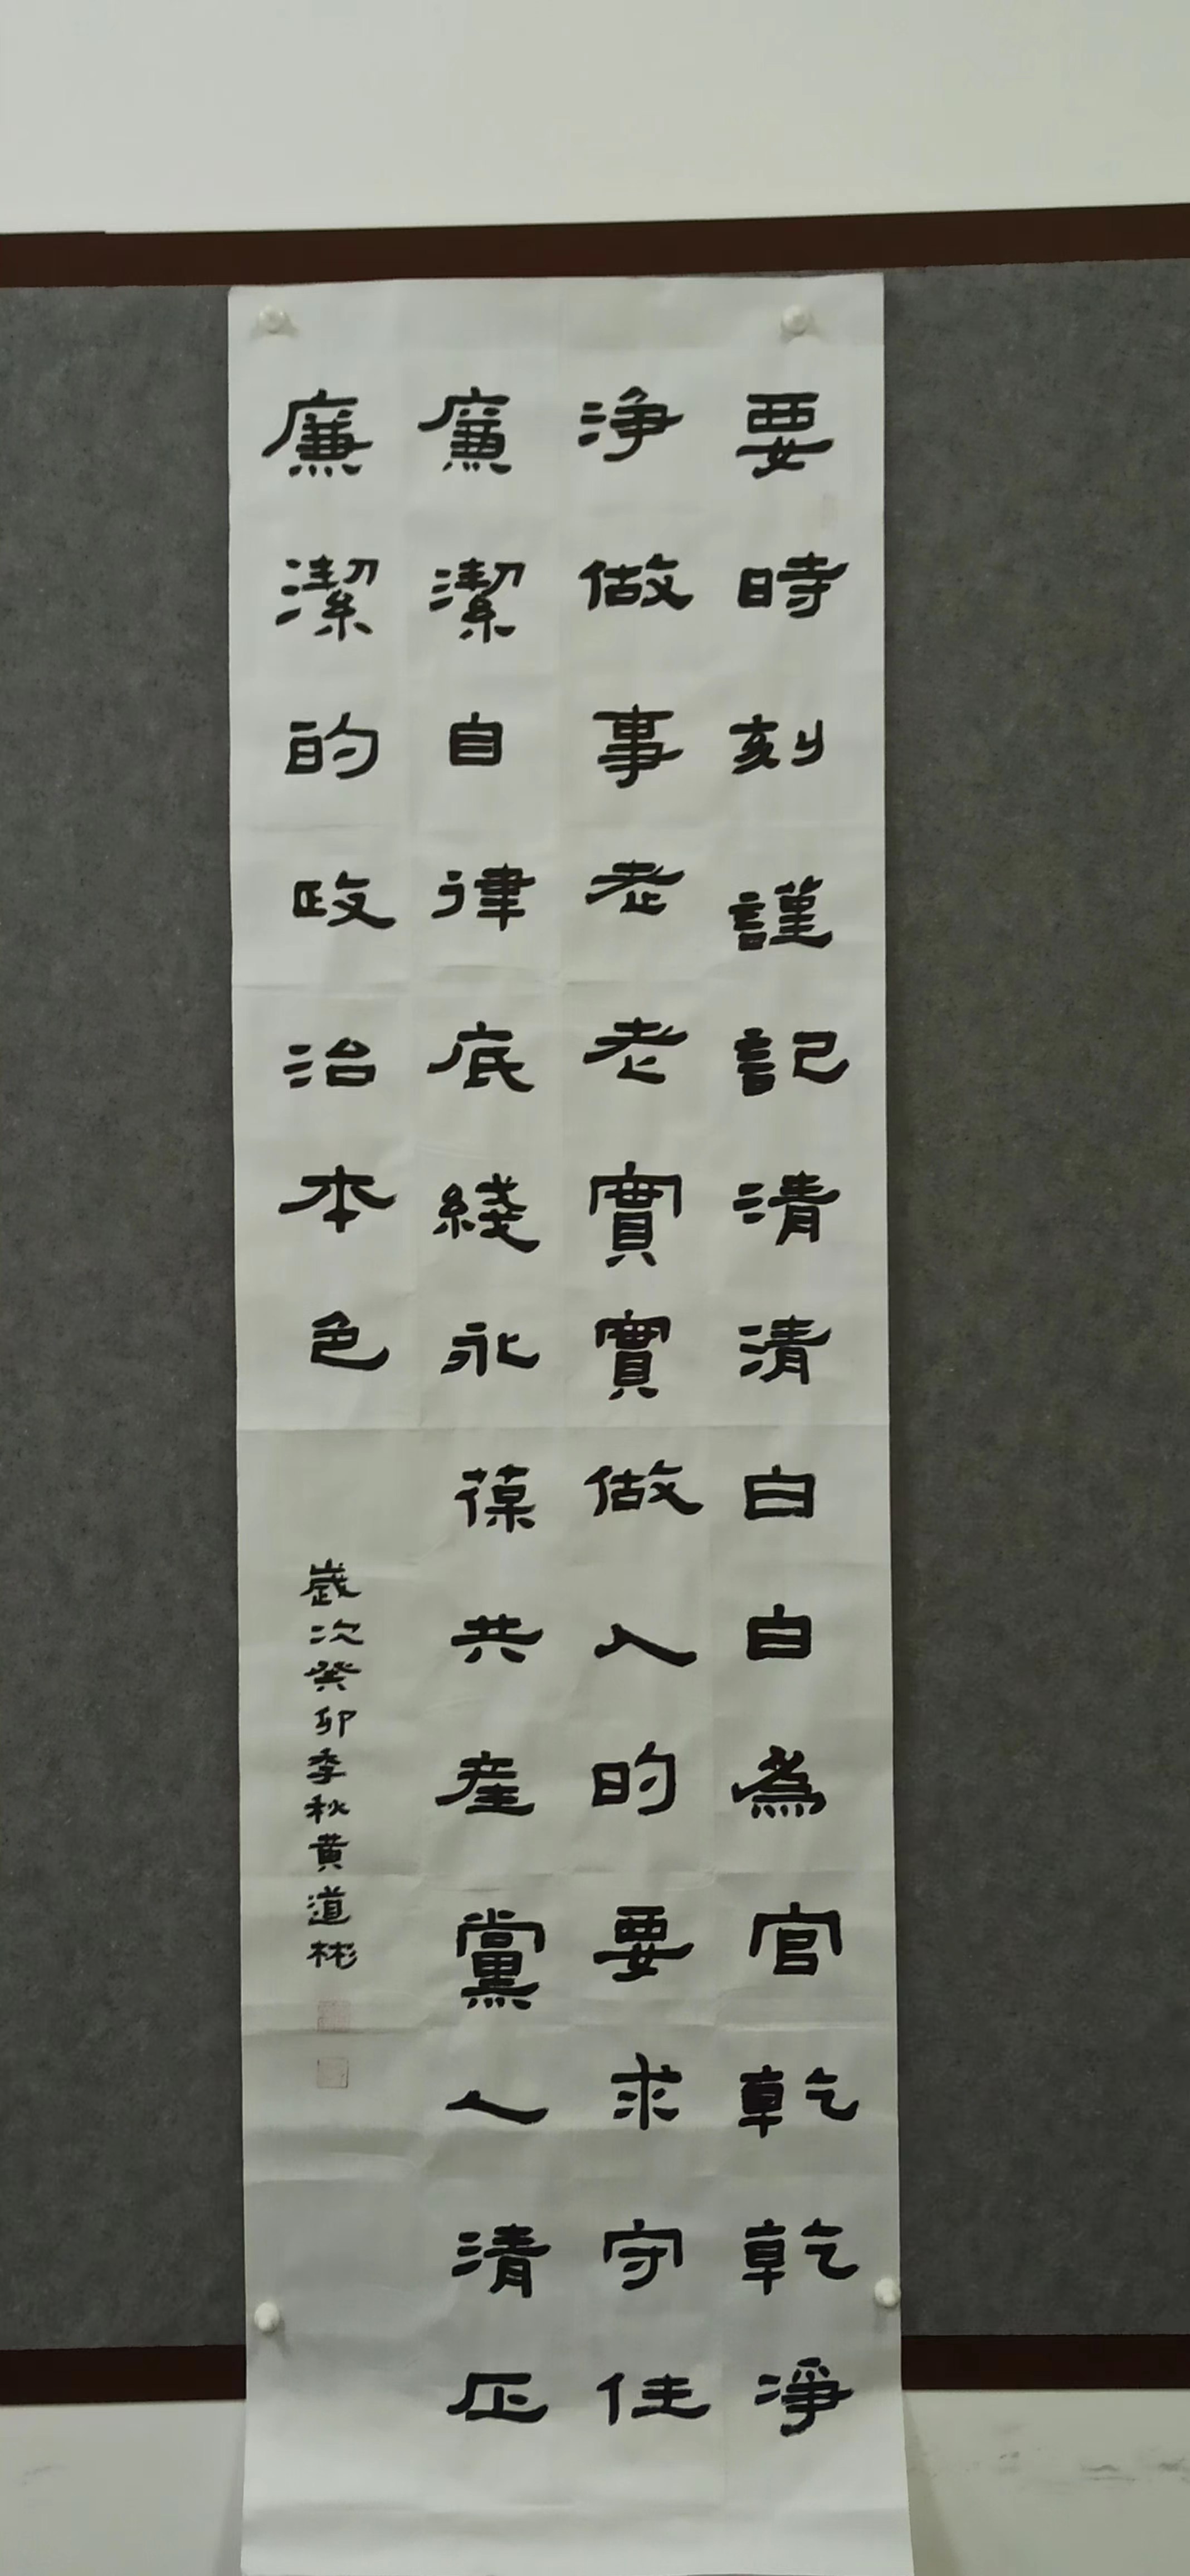 要時刻謹記清清白白為官乾乾淨
净做事老老實實做人的要求守住
廉潔自律底綫永葆共産黨人清正
廉潔的政治本色
歲次癸卯季秋黄道彬